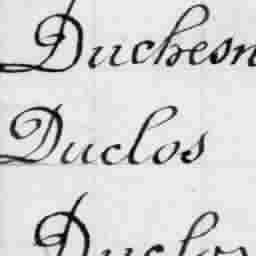 Duchesn
Duclos
Duclos